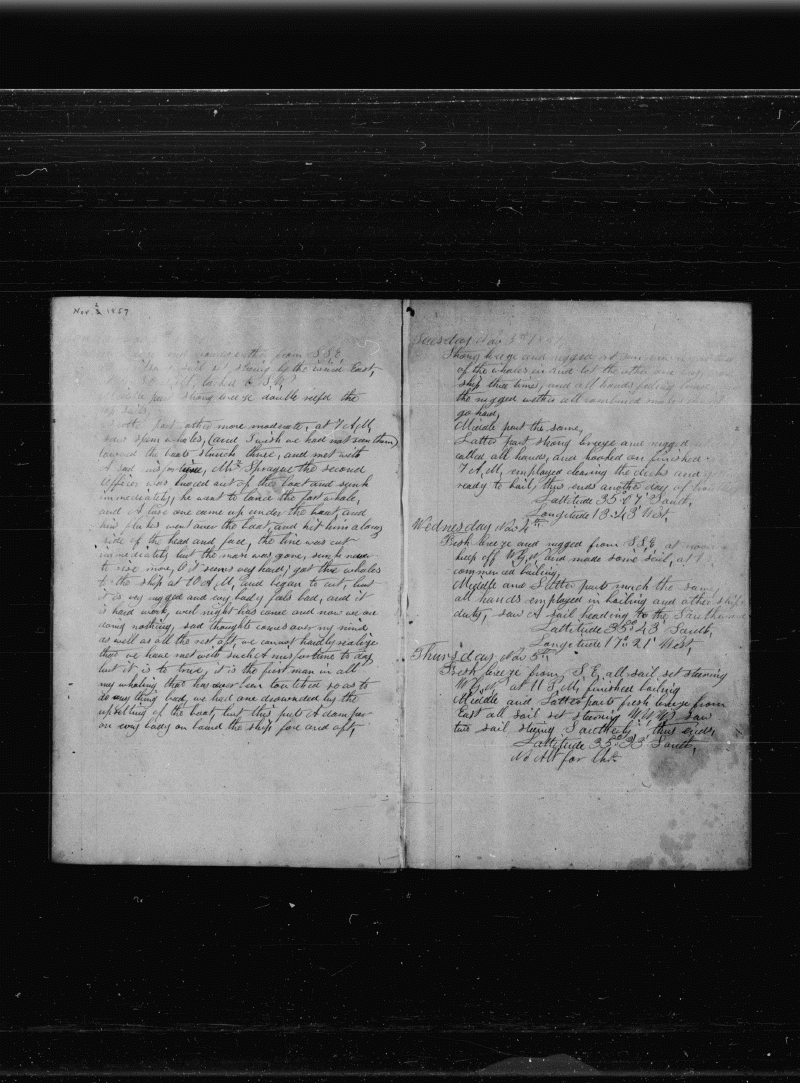 Nov. 2 1857
from S.S.E.
sail set, steering by the wind East,
tacked to S.W.
Middle part strong breeze double reef'd the
top sails,
Latter part other more moderate, at 7 A,M,
saw sperm whales, (and I wish we had not seen them)
lowered the boats struck three, and met with
A sad misfortune, Mr. Sprague the second
officer was knocked out of the boat and sunk
immediately, he went to lance the fast whale,
and A lose one came up under the boat, and
his flukes went over the boat, and hit him along
side of the head and face, the line was cut
immediately but the man was gone, sunk never
to rise more, O it seems very hard; got the whales
to the ship at 10 A,M, and began to cut, but
it is very rugged and evry body feels bad, and it
is hard work, well night has come and now we are
doing nothing, sad thoughts comes over my mind
as well as all the rest aft, we cannot hardly realize
that we have met with such A misfortune to day,
but it is to true, it is the first man in all
my whaling that has ever ben touched so as to
do any thing bad, we had one drownded by the
upsetting of the boat, but this puts A damper
on evry body on board the ship fore and aft,
Tuesday Nov 3rd 1857
Strong breeze and rugged at
of the whales in and lot the other one
ship three times, and all hands feeling
the rugged wether all combined makes
go hard,
Middle part the same,
Latter part strong breeze and rugged
called all hands, and hooked on finished
7 A,M, employed clearing the decks and
ready to bail, thus ends another day of
Lattitude 35° 07' South,
Longitude 13° 43' West,
Wednesday Nov 4th
Fresh breeze and rugged from S.S.E. at noon
keep off W by N and made some sail, at
commenced bailing,
Middle and Latter parts much the same,
all hands employed in bailing and other ships
duty, saw A sail heading to the Southward
Lattitude 35° 43' South,
Longitude 17° 21' West,
Thursday Nov 5th
Fresh breeze from S.E, all sail set steering
W by N at 11 P,M, finished bailing
Middle and Latter parts fresh breeze from
East all sail set steering W.N.W. saw
two sail steering Southerly, thus ends,
Lattitude 35° 33' South,
No Alt for Chr.